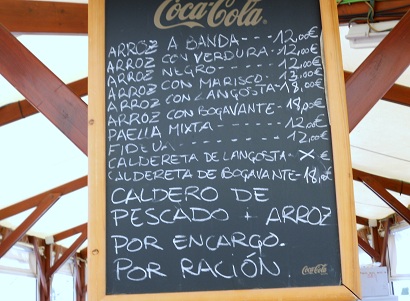 Coca-Cola
ARROZ A BANDA---- 12,00€
ARROZ CON VERDURA- 12,00€
ARROZ NEGRO ----- 12,00€
ARROZ CON MARISCO- 13,00€
ARROZ CON LANGOSTA- 18,00€
ARROZ CON BOGAVANTE- 18,00€
PAELLA MIXTA ------ 12,00€
FIDEUA --------- 12,00€
CALDERETA DE LANGOSTA- X €
CALDERETA DE BOGAVANTE- 18,00€
CALDERO DE
PESCADO + ARROZ
POR ENCARGO.
POR RACIÓN.
Coca-Cola